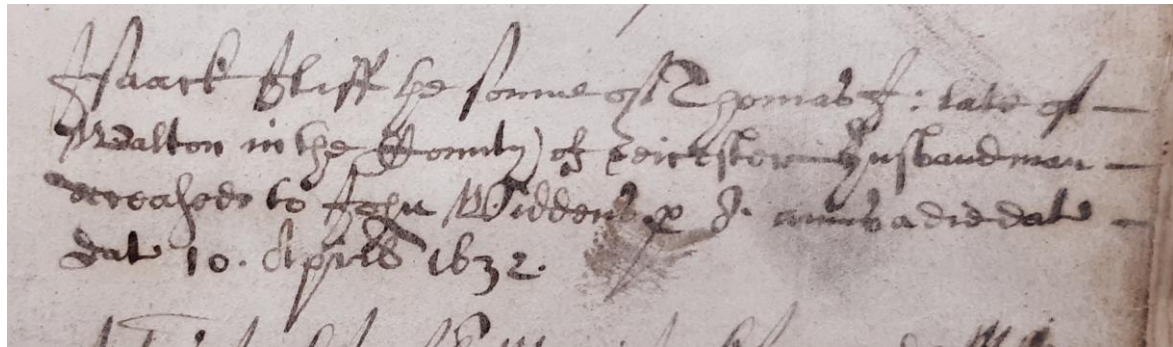 Isaack Iliff the sonne of Thomas I: late of
Walton in the County of Leicester Husbandman
deceased to John Widdens p annis a die date
dat 10. Aprilis 1632.